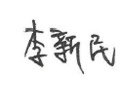 李新民